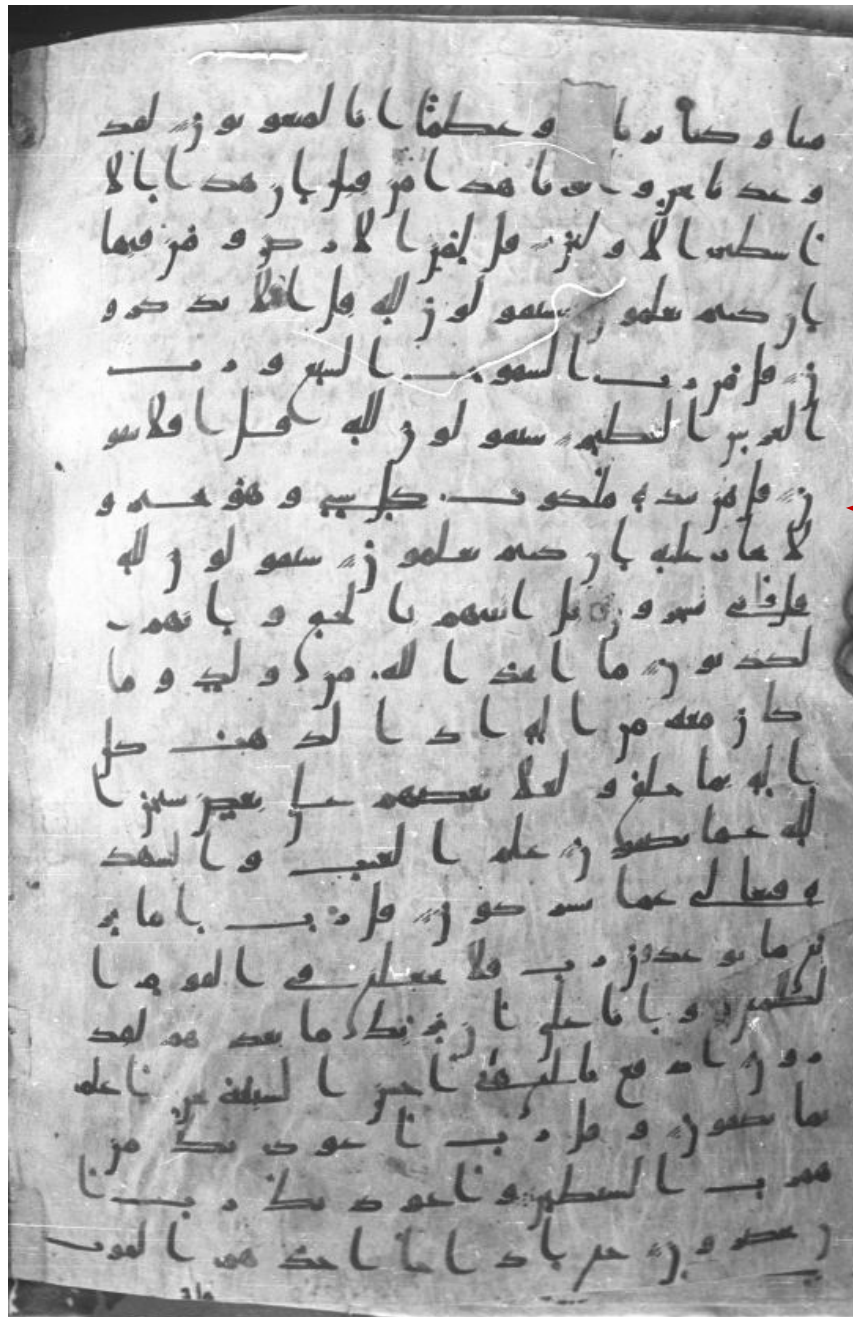 متنا وكنا ترابا وعظما انا لمبعوثون لقد
وعدنا نحن واباونا هذا من قبل ان هذا الا
اسطير الاولين قل لمن الارض ومن فيها
ان كنتم تعلمون سيقولون لله قل افلا تذكرو
ن قل من رب السموت السبع ورب
العرش العظيم سيقولون لله قل افلا تتقو
ن قل من بيده ملكوت كل شي وهو يجير و
لا يجار عليه ان كنتم تعلمون سيقولون لله
قل فانى تسحرون بل اتينهم بالحق وانهم
لكذبون ما اتخذ الله من ولد وما
كان معه من اله اذا لذهب كل
اله بما خلق ولعلا بعضهم على بعض سبحن ا
لله عما يصفون علم الغيب والشهد
ه فتعلى عما يشركون قل رب اما تر
يني ما يوعدون رب فلا تجعلني في القوم ا
لظلمين وانا على ان نريك ما نعدهم لقد
رون ادفع بالتي هي احسن السيئه نحن اعلم
بما يصفون وقل رب اعوذ بك من
همزت الشيطين واعوذ بك رب ا
ن يحضرون حتى اذا جا احدهم الموت